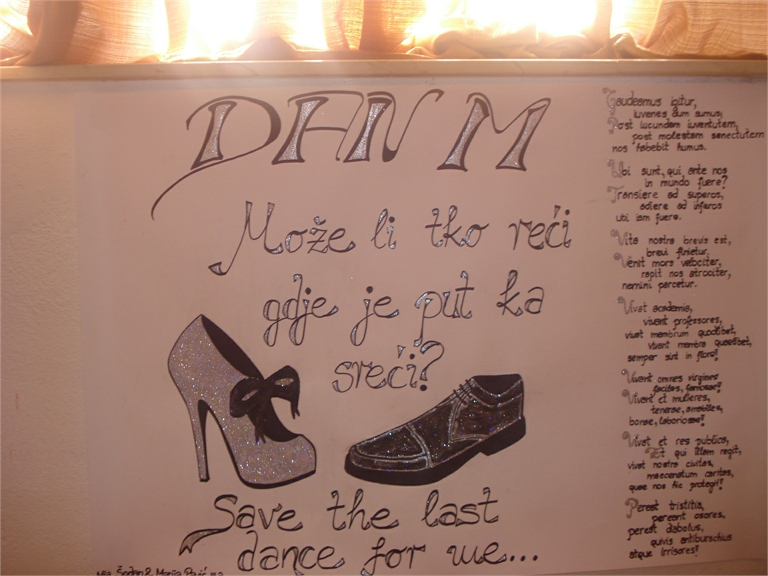 DAN M
Može li tko reći
gdje je put ka
sreći?
Save the last
dance for me...
Gaudeamus igitur,
iuvenes dum sumus,
Post iucundam iuventutem,
post molestam senectutem
nos habebit humus.
Ubi sunt, qui ante nos
in mundo fuere?
Transiere ad superos,
adiere ad inferos
ubi iam fuere.
Vita nostra brevis est,
brevi finietur,
Venit mors velociter,
rapit nos atrociter,
nemini parcetur.
Vivat academia,
vivant professores,
vivat membrum quodlibet,
vivant membra quaelibet,
semper sint in flore!
Vivant omnes virgines
faciles, formosae!
Vivant et mulieres,
tenerae, amabiles,
bonae, laboriosae!
Vivat et res publica,
Et qui illam regit,
vivat nostra civitas,
maecenatum caritas,
quae nos hic protegit!
Pereat tristitia,
pereant osores,
pereat diabolus,
quivis antiburschius
atque irrisores!